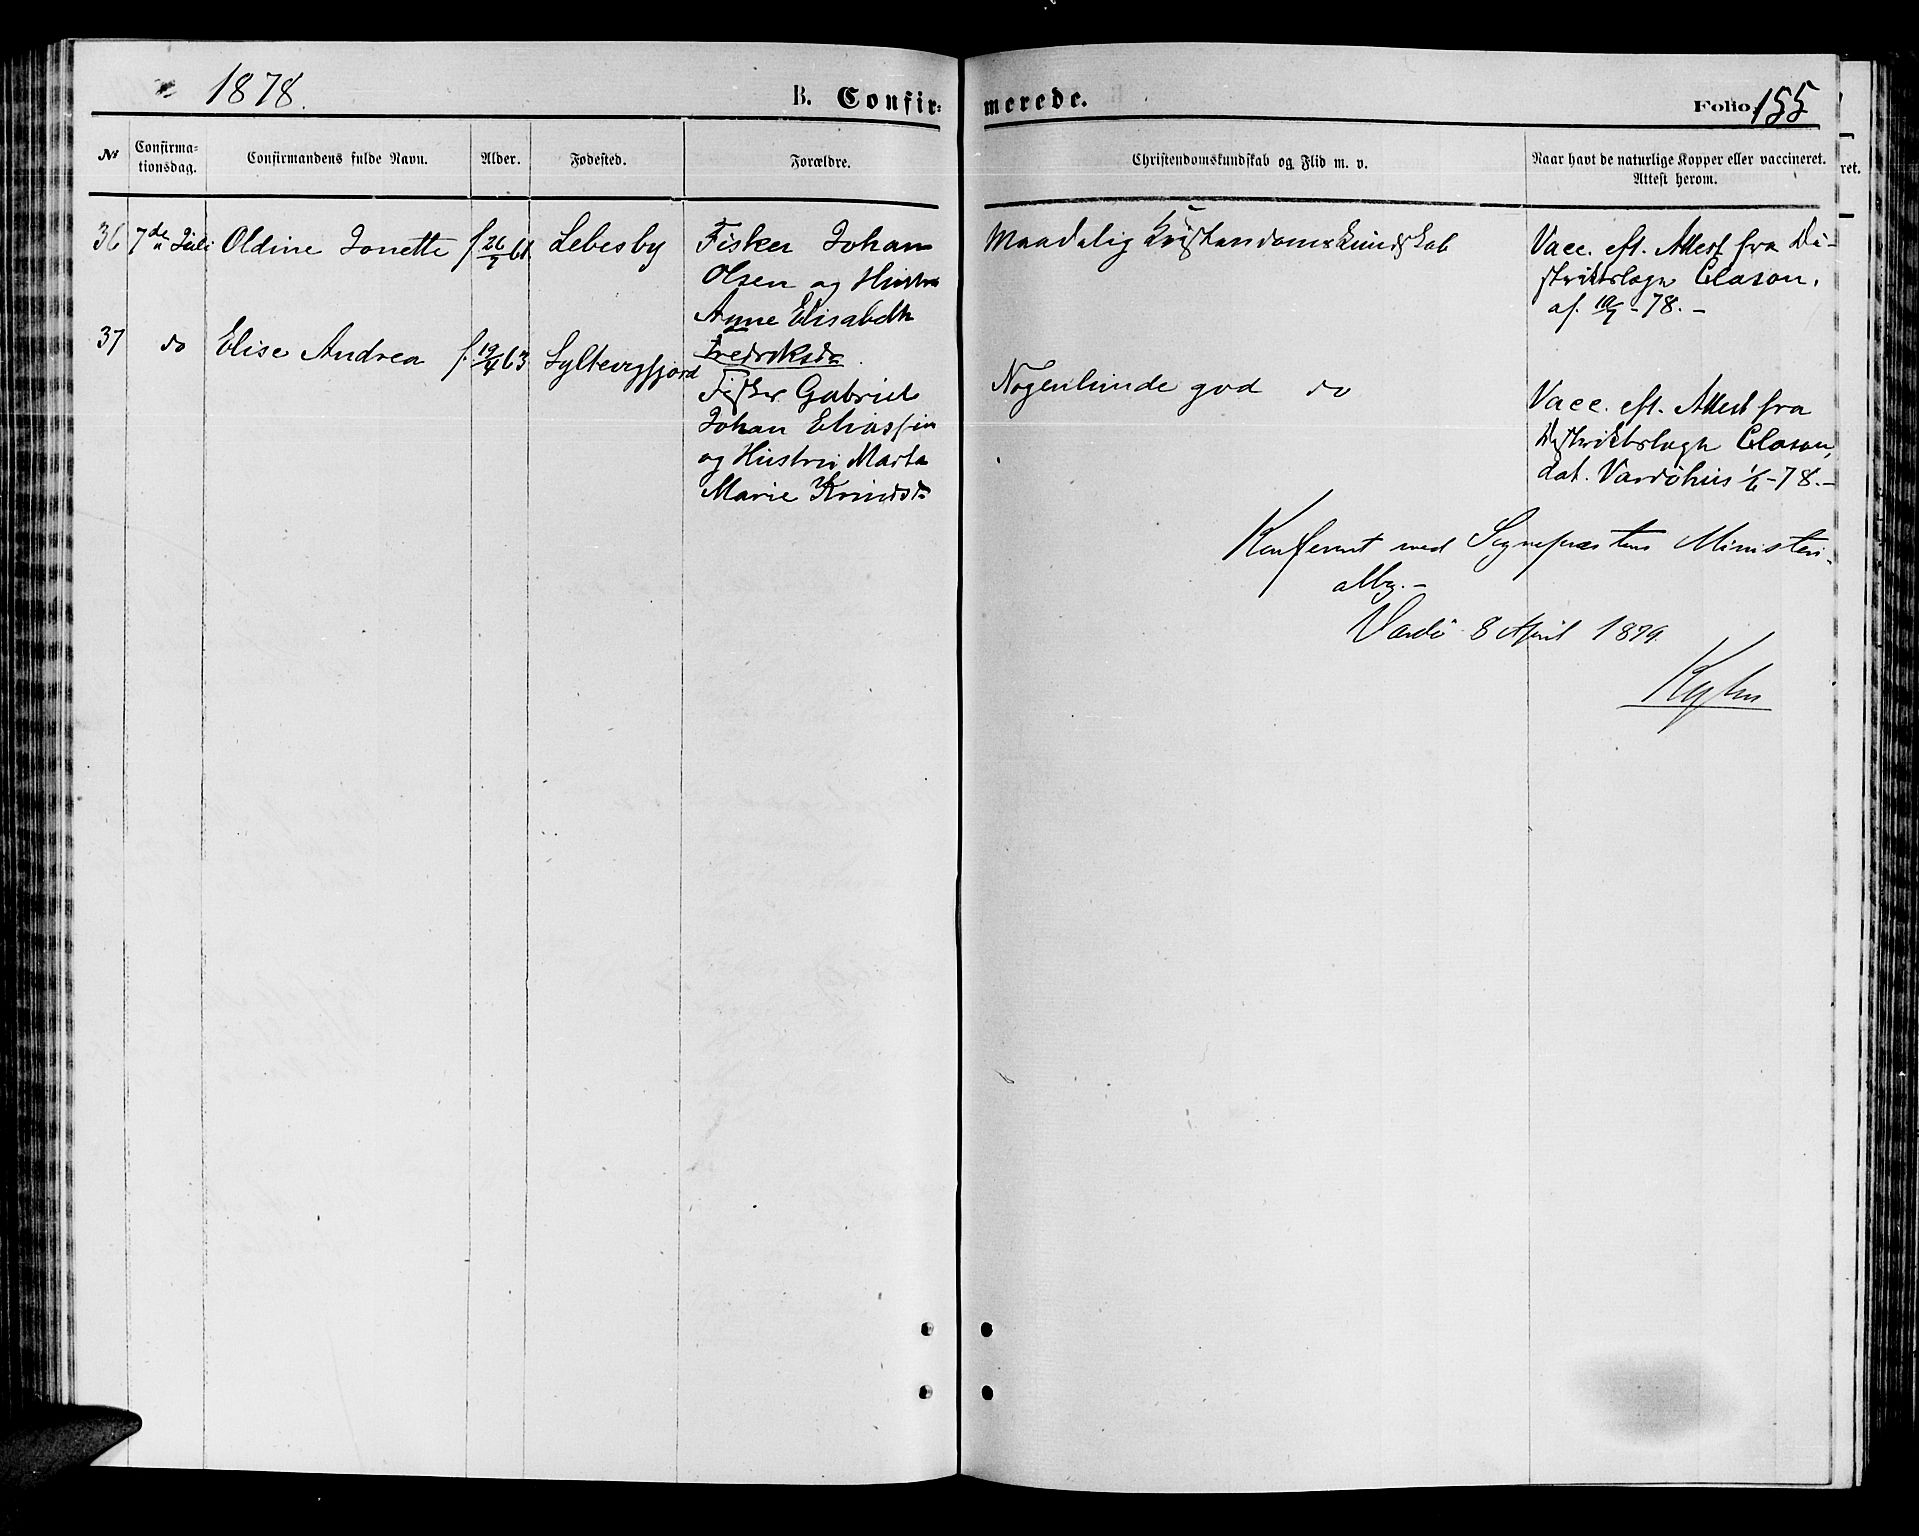 1878.
B. Confir-
merede.
Folio 155
No
Confirma-
tionsdag.
Confirmandens fulde Navn.
Alder.
Fødested.
Forældre.
Christendomskundskab og Flid m. v.
Naar havt de naturlige Kopper eller vaccineret.
Attest herom.
ret.
36 7de Juli Oldine Jonette f. 26/7 61 Lebesby
Fisker Johan
Olsen og Hustru
Anne Elisabeth
Fredriksdr.
Maadelig Kristendomskundskab
Vacc. eft. Attest fra Di-
striktslæge Clason,
af. -78.-
37 do Elise Andrea f. 19/4 63 Syltevigfjord
Fisker Gabriel
Johan Eliassen
og Hustru Marta
Marie
Nogenlunde god do
Vacc. eft. Attest fra
Distriktslæge Clason,
dat. Vardøhus 1/6-78.-
Konfereret med Sognepræstens Ministeri-
albog.-
Vardø 8 April 1879.